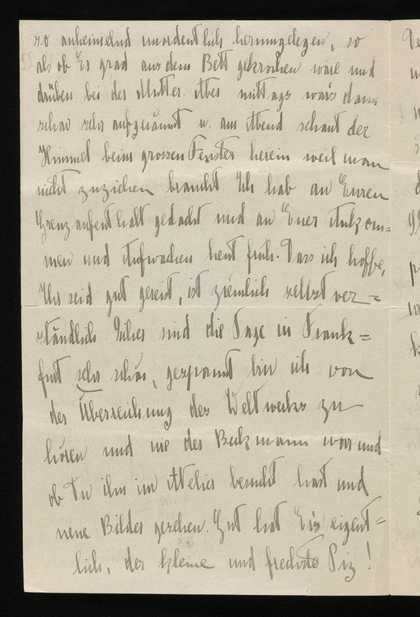 so anheimelnd unordentlich herumgelegen, so
als ob Es grad aus dem Bett gekrochen wäre und
drüben bei der Mutter. Aber mittags war's dann
schon sehr aufgeräumt u. am Abend schaut der
Himmel beim grossen Fenster herein weil man
nicht zuziehen braucht. Ich hab an Euren
Grenzaufenthalt gedacht und an Euer Ankom=
men und Aufwachen heut früh. Dass ich hoffe,
Ihr seid gut gereist, ist ziemlich selbst ver=
ständlich. sind die Tage in Frank=
furt sehr schön, gespannt bin ich von
der Überreichung des Weltwerks zu
hören und wie der Beckmann war und
ob Du ihn im Atelier besucht hast und
neue Bilder gesehen. Gut hat Eis eigent=
lich, der kleine und frechste Piz!